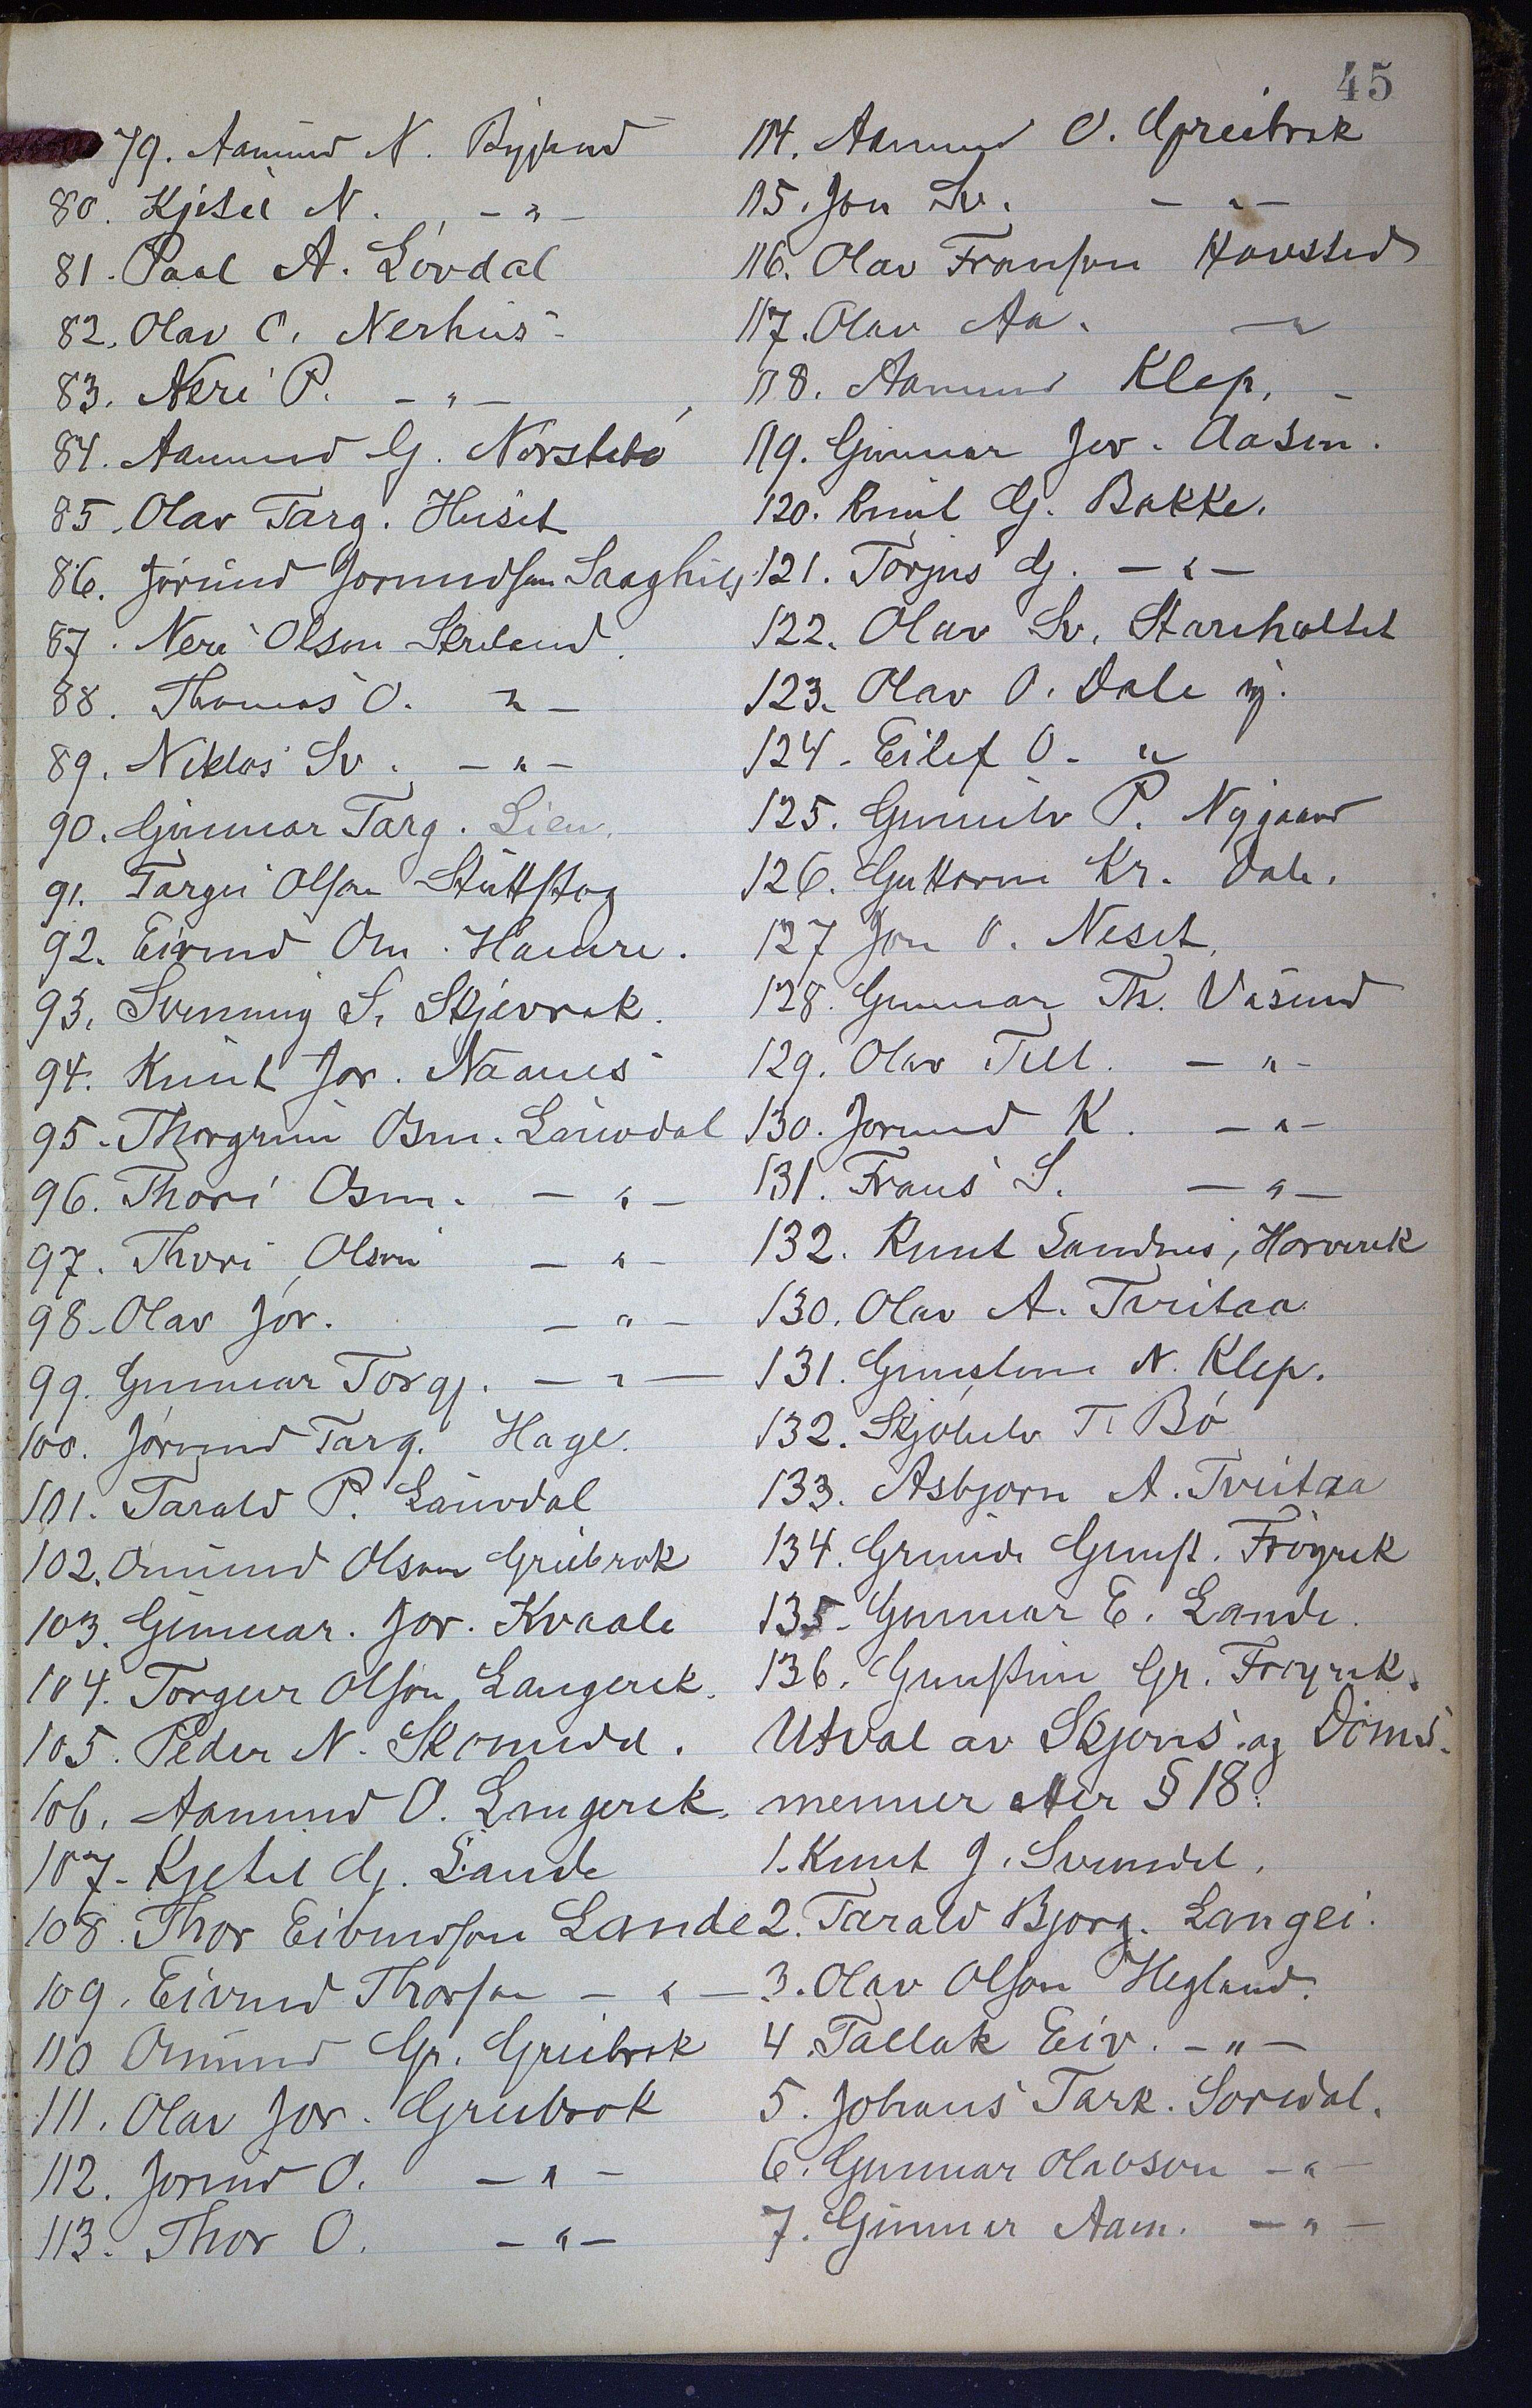 45
79. Aamund N. Bygland
80. Kjetil N. - " -
81. Paal A. Lövdal
82. Olav O. Nerhus
83. Neri P. - " -
84. Aamund G. Norstebö
85. Olav Targ. Huset
86. Jörund Jorundson Saaghus
87. Neri Olson Skreland
88. Thomas O. " -
89. Niklas Sv. - " -
90. Gunnar Targ. Lien.
91. Targei Olson Stuttskog
92. Eivind Om. Hamre.
93. Svenung S. Skjevrak.
94. Knut Jor. Naanes
95. Thorgrim Osm. Lauvdal
96. Thori Osm. - " -
97. Thori Olson - " -
98. Olav Jör. - " -
99. Gunnar Torgj. - " -
100. Jörund Targ. Hage.
101. Tarald P. Lauvdal
102. Omund Olson Greibrok
103. Gunnar. Jor. Kvaale
104. Torgeir Olson Langerek.
105. Peder N. Skomedal.
106. Aamund O. Langerek.
107. Kjetil Dj. Lande
108. Thor Eivindson Lande
109. Eivind Thorson - " -
110 Omund Gr. Greibrok
111. Olav Jor. Greibrok
112. Jorund O. - " -
113. Thor O. - " -
114. Aamund O. Greibrok
115. Jon Sv. - " -
116. Olav Franson Havsted
117. Olav Aa. - "
118. Aamund Klep. -
119. Gunnar Jor. Aasen.
120. Knut Dj. Bakke.
121. Torjus Dj. - " -
122. Olav Sv. Stareholtet
123. Olav O. Dale
124. Eilef O. "
125. Gunnulv P. Nygaard
126. Guttorm Kr. Dale.
127 Jon O. Neset.
128. Gunnar Th. Vasend
129. Olav Tell. - " -
130. Jorund K. - " -
131. Frans S. - " -
132. Knut Sandnes, Horverak
130. Olav A. Tveitaa
131. Gunstein N. Klep.
132. Skjöhulv T. Bö
133. Asbjorn A. Tveitaa
134. Grunde Gunst. Fröyrak
135. Gunnar E. Lande.
136. Gunstein Gr. Froyrak.
Utval av Skjons. og Doms-
menner etter § 18.
1. Knut J. Sveindal.
2. Tarald Bjorg. Langei.
3. Olav Olson Hegland.
4. Tallak Eiv. - " -
5. Johans Tark. Sordal.
6. Gunnar Olavson - " -
7. Gunnar Aam. - " -